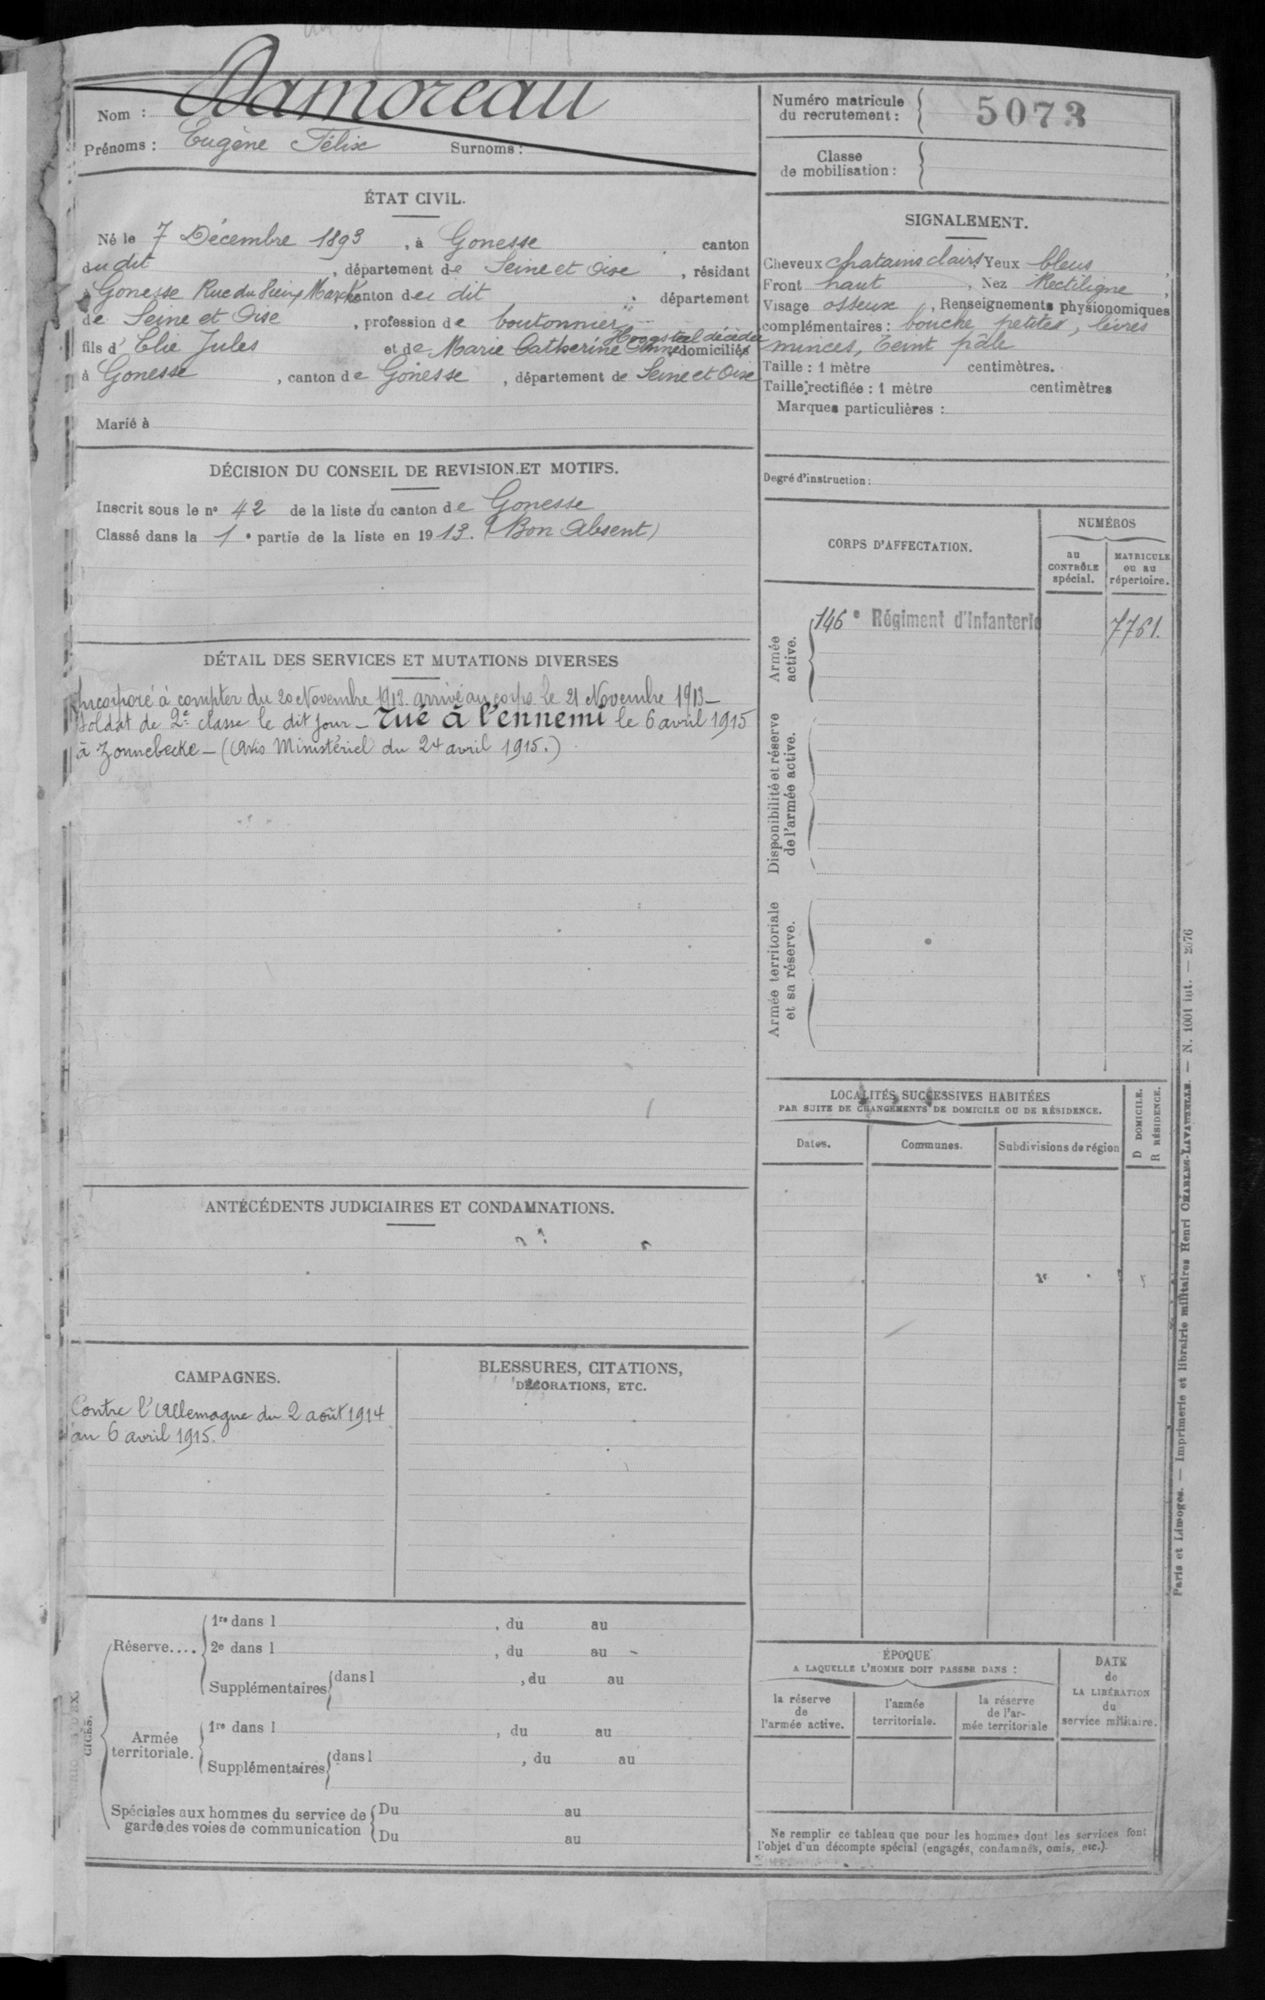 Nom : Damoreau
Prénoms : Eugène Félix Surnoms :
ÉTAT CIVIL.
Né le 7 Décembre 1893, à Gonesse canton
du dit, département de Seine et Oise, résidant
à Gonesse Rue du Vieux Marché canton de dit département
de Seine et Oise, profession de boutonnier
fils d' Elie Jules et de Marie Catherine Anne domiciliés
à Gonesse, canton de Gonesse, département de Seine et Oise
Marié à
DÉCISION DU CONSEIL DE REVISION ET MOTIFS.
Inscrit sous le no 42 de la liste du canton de Gonesse
Classé dans la 1e partie de la liste en 1913. (Bon Absent)
DÉTAIL DES SERVICES ET MUTATIONS DIVERSES
Incorporé à compter du 20 Novembre 1913 arrivé au corps le 21 Novembre 1913 –
Soldat de 2e classe le dit jour – Tué à l'ennemi le 6 avril 1915
à Zonnebecke – (Avis Ministériel du 24 avril 1915.)
ANTÉCÉDENTS JUDICIAIRES ET CONDAMNATIONS.
CAMPAGNES.
Contre l'Allemagne du 2 août 1914
au 6 avril 1915.
BLESSURES, CITATIONS,
DÉCORATIONS, ETC.
Réserve....
1re dans l , du au
2e dans l , du au
Supplémentaires dans l , du au
Armée
territoriale.
1re dans l , du au
Supplémentaires dans l , du au
Spéciales aux hommes du service de
garde des voies de communication
Du au
Du au
Numéro matricule
du recrutement : 5073
Classe
de mobilisation :
SIGNALEMENT.
Cheveux chatains clairs Yeux bleus,
Front haut, Nez Rectiligne,
Visage osseux, Renseignements physionomiques
complémentaires : bouche petite, lèvres
minces, Teint pâle
Taille : 1 mètre centimètres.
Taille rectifiée : 1 mètre centimètres
Marques particulières :
Degré d'instruction :
CORPS D'AFFECTATION.
NUMÉROS
au
CONTRÔLE
spécial.
MATRICULE
ou au
répertoire.
Armée
active.
146e Régiment d'Infanterie 7761.
Disponibilité et réserve
de l'armée active.
Armée territoriale
et sa réserve.
LOCALITÉS SUCCESSIVES HABITÉES
PAR SUITE DE CHANGEMENTS DE DOMICILE OU DE RÉSIDENCE.
Dates. Communes. Subdivisions de région
D DOMICILE.
R RÉSIDENCE.
ÉPOQUE
A LAQUELLE L'HOMME DOIT PASSER DANS :
la réserve
de
l'armée active.
l'armée
territoriale.
la réserve
de l'ar-
mée territoriale
DATE
de
LA LIBÉRATION
du
service militaire.
Ne remplir ce tableau que pour les hommes dont les services font
l'objet d'un décompte spécial (engagés, condamnés, omis, etc.).
Paris et Limoges. — Imprimerie et librairie militaires Henri CHARLES-LAVAUZELLE. — N. 1001 int. — 2076